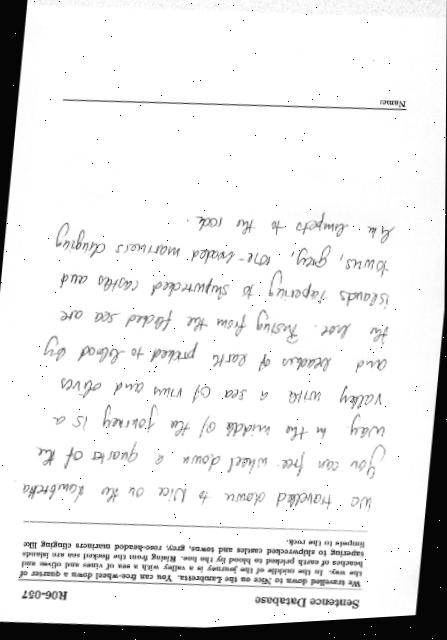 Sentence Database R06-057
We travelled down to Nice on the Lambretta. You can free-wheel down a quarter of
the way. In the middle of the journey is a valley with a sea of vines and olives and
beaches of earth pricked to blood by the hoe. Rising from the flecked sea are islands
tapering to shipwrecked castles and towns, grey, rose-headed mariners clinging like
limpets to the rock.
We travelled down to Nice on the Lambretta
You can free wheel down a quarter of the
way. In the middle of the journey is a
valley with a sea of vines and olives
and beaches of earth pricked to blood by
the hoe. Rising from the flecked sea are
islands tapering to shipwrecked castles and
towns, grey, rose-headed mariners clinging
like limpets to the rock.
Name: